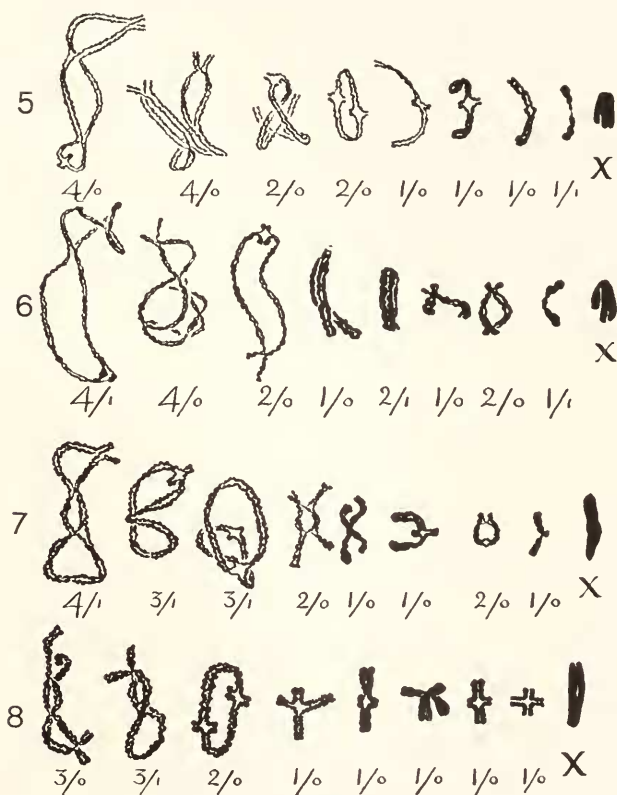 5
4/0 4/0 2/0 2/0 1/0 1/0 1/0 1/1 X
6
4/1 4/0 2/0 1/0 2/1 1/0 2/0 1/1 X
7
4/1 3/1 3/1 2/0 1/0 1/0 2/0 1/0 X
8
3/0 3/1 2/0 1/0 1/0 1/0 1/0 1/0 X